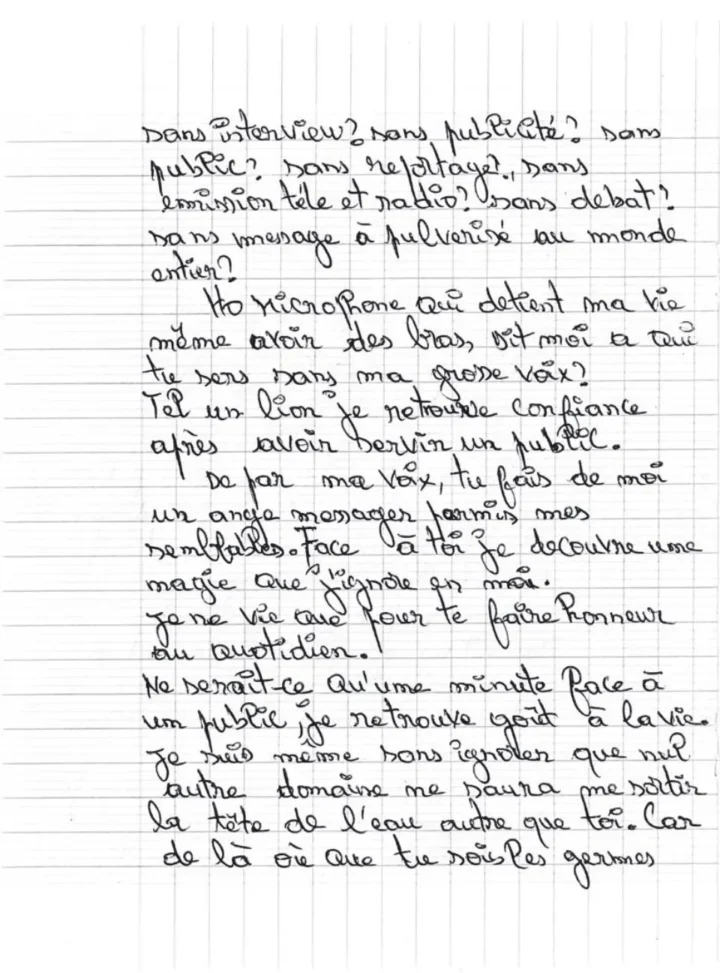 Sans interview? sans publicité? sans
public? sans reportage?, sans
émission téle et radio? sans debat?
sans message à pulverisé au monde
entier?
Ho Microphone qui detient ma vie
même avoir des bras, dit moi a qui
tu sers sans ma grosse voix?
Tel un lion je retrouve confiance
après avoir servir un public.
De par ma voix, tu fais de moi
un ange messager parmis mes
semblables. Face à toi je decouvre une
magie que j'ignore en moi.
Je ne vie que pour te faire honneur
au quotidien.
Ne serait-ce qu'une minute face à
un public, je retrouve goût à la vie.
Je suis même sans ignorer que nul
autre domaine ne saura me sortir
la tête de l'eau autre que toi. Car
de là où que tu sois les germes